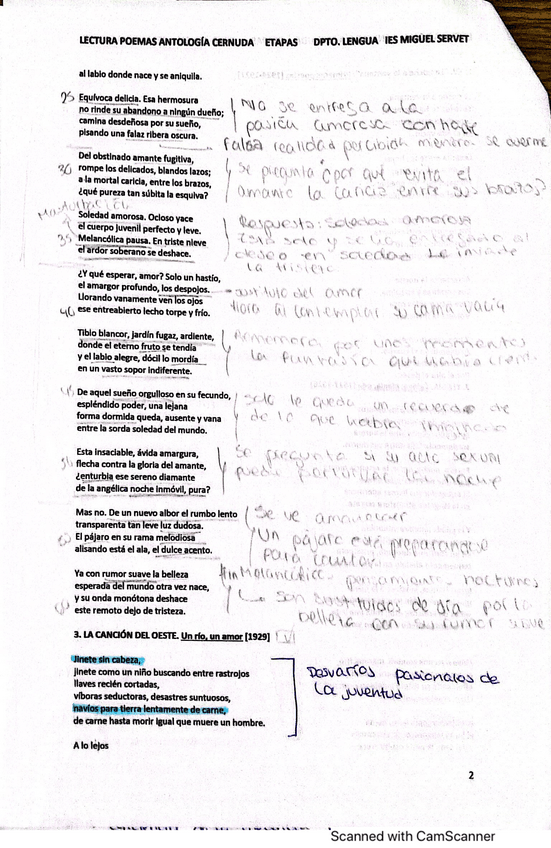 LECTURA POEMAS ANTOLOGÍA CERNUDA ETAPAS DPTO. LENGUA IES MIGUEL SERVET
al labio donde nace y se aniquila.
25 Equívoca delicia. Esa hermosura
no rinde su abandono a ningún dueño;
camina desdeñosa por su sueño,
pisando una falaz ribera oscura.
No se entrega a la
pasión amorosa con nadie
falsa realidad percibida mientras se duerme
Del obstinado amante fugitiva,
30 rompe los delicados, blandos lazos;
a la mortal caricia, entre los brazos,
¿qué pureza tan súbita la esquiva?
Se pregunta ¿por qué evita el
amante la caricia entre sus brazos?
Soledad amorosa. Ocioso yace
el cuerpo juvenil perfecto y leve.
35 Melancólica pausa. En triste nieve
el ardor soberano se deshace.
Respuesta: soledad amorosa
Está solo y se entregado al
deseo en soledad le invade
la tristeza
¿Y qué esperar, amor? Solo un hastío,
el amargor profundo, los despojos.
Llorando vanamente ven los ojos
40 ese entreabierto lecho torpe y frío.
sustituto del amor
llora al contemplar su cama vacía
Tibio blancor, jardín fugaz, ardiente,
donde el eterno fruto se tendía
y el labio alegre, dócil lo mordía
en un vasto sopor indiferente.
Rememora por unos momentos
la fantasía que había
De aquel sueño orgulloso en su fecundo,
espléndido poder, una lejana
forma dormida queda, ausente y vana
entre la sorda soledad del mundo.
Solo le queda un recuerdo de
de lo que había imaginado
Esta insaciable, ávida amargura,
flecha contra la gloria del amante,
¿enturbia ese sereno diamante
de la angélica noche inmóvil, pura?
Se pregunta si su acto sexual
puede perturbar la noche
Mas no. De un nuevo albor el rumbo lento
transparenta tan leve luz dudosa.
El pájaro en su rama melodiosa
alisando está el ala, el dulce acento.
Se ve amanecer
Un pájaro está preparándose
para cantar
Ya con rumor suave la belleza
esperada del mundo otra vez nace,
y su onda monótona deshace
este remoto dejo de tristeza.
pensamientos nocturnos
son sustituidos de día por la
belleza con su rumor suave
3. LA CANCIÓN DEL OESTE. Un río, un amor [1929]
Jinete sin cabeza,
jinete como un niño buscando entre rastrojos
llaves recién cortadas,
víboras seductoras, desastres suntuosos,
navíos para tierra lentamente de carne,
de carne hasta morir igual que muere un hombre.
Desvaríos pasionales de
la juventud
A lo lejos
2
Scanned with CamScanner